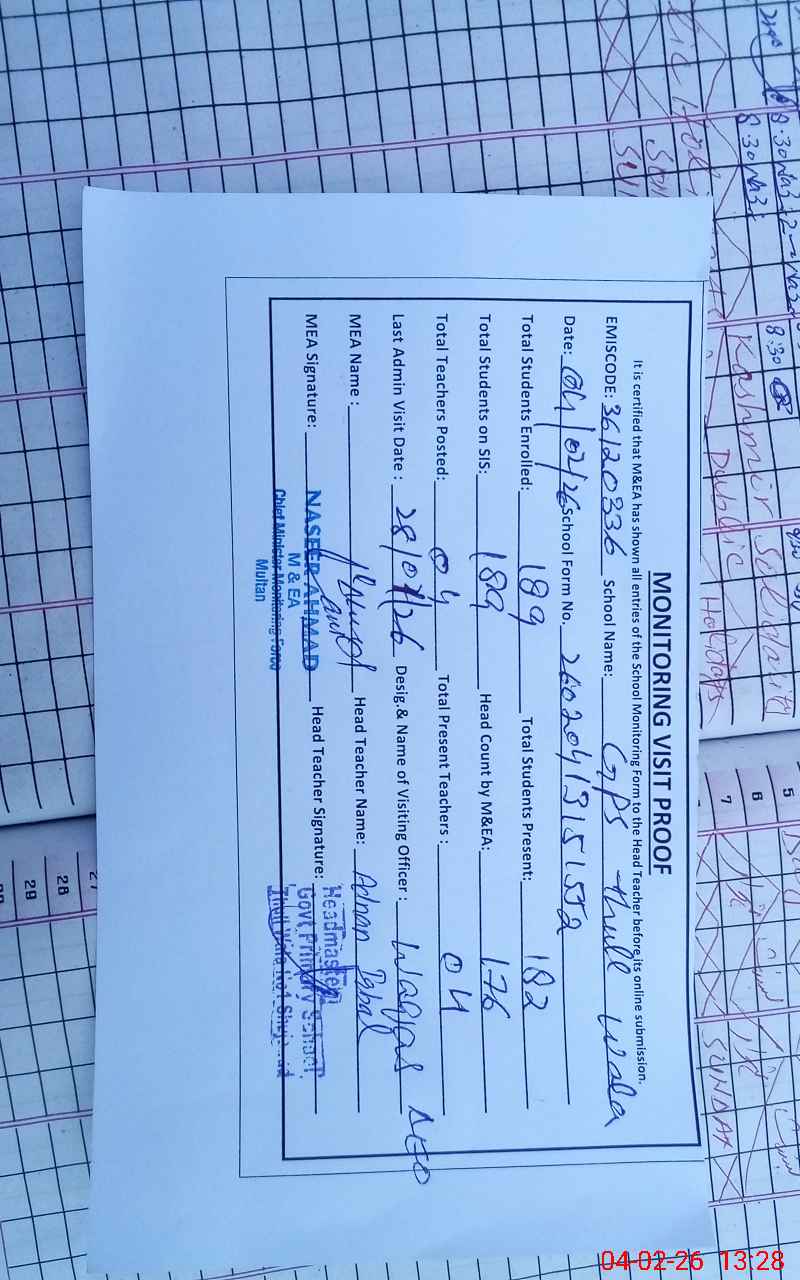 MONITORING VISIT PROOF
It is certified that M&EA has shown all entries of the School Monitoring Form to the Head Teacher before its online submission.
EMISCODE: 36120336 School Name: GPS thull wala
Date: 04/02/26 School Form No. 26020413151552
Total Students Enrolled: 189 Total Students Present: 182
Total Students on SIS: 189 Head Count by M&EA: 176
Total Teachers Posted: 04 Total Present Teachers: 04
Last Admin Visit Date: 28/01/26 Desig.& Name of Visiting Officer: Waqas AEO
MEA Name: Head Teacher Name: Adnan Iqbal
MEA Signature: Head Teacher Signature:
NASEER AHMAD
M & EA
Chief Minister Monitoring Force
Multan
Headmaster
Govt Primary School
8:30
8:30
8:30
Kashmir Solidarity
Public Holidays
5
6
7
SUNDAY
27
28
29
04-02-26 13:28